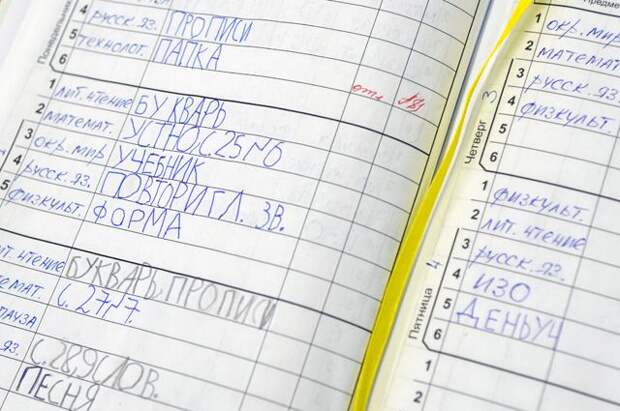 Понедельник
4 русск. яз. ПРОПИСИ
5 технолог. ПАПКА
6
1 лит. чтение БУКВАРЬ
2 математ. УСТНО С 25 №6
3 окр. мир УЧЕБНИК
4 русск. яз. ПОВТОРИ ГЛ. ЗВ.
5 физкульт. ФОРМА
лит. чтение БУКВАРЬ. ПРОПИСИ
математ. С. 27 №7.
пауза
яз. С. 28,9 СЛОВ.
ПЕСНЯ
Предме
Четверг 3
1 окр. мир
2 математ.
3 русск. яз.
4 физкульт.
5
6
Пятница 4
1 физкульт.
2 лит. чтение
3 русск. яз.
4 ИЗО
5 ДЕНЬ УЧ
6
1
2